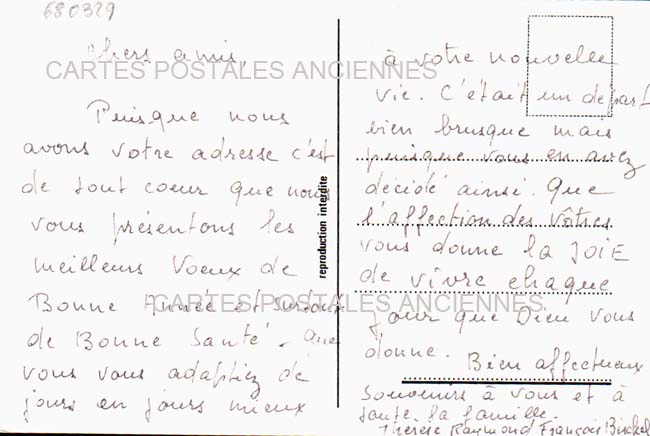 680329
chers amis,
CARTES POSTALES ANCIENNES
Puisque nous
avons votre adresse c'est
de tout coeur que nous
vous présentons les
meilleurs Voeux de
Bonne Année et surtout
CARTES POSTALES ANCIENNES
de Bonne Santé. Que
vous vous adaptiez de
jours en jours mieux
reproduction interdite
à votre nouvelle
vie. C'était un départ
bien brusque mais
puisque vous en avez
décidé ainsi. Que
l'affection des vôtres
vous donne la JOIE
de vivre chaque
jour que Dieu vous
donne. Bien affectueux
souvenirs à vous et à
toute la famille.
Thérèse Raymond François